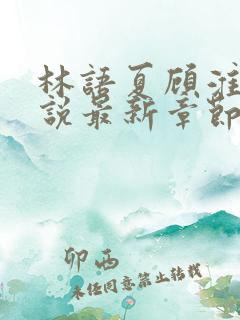 林語夏顾淮
说最新章節
卯西
未任同意禁止转载